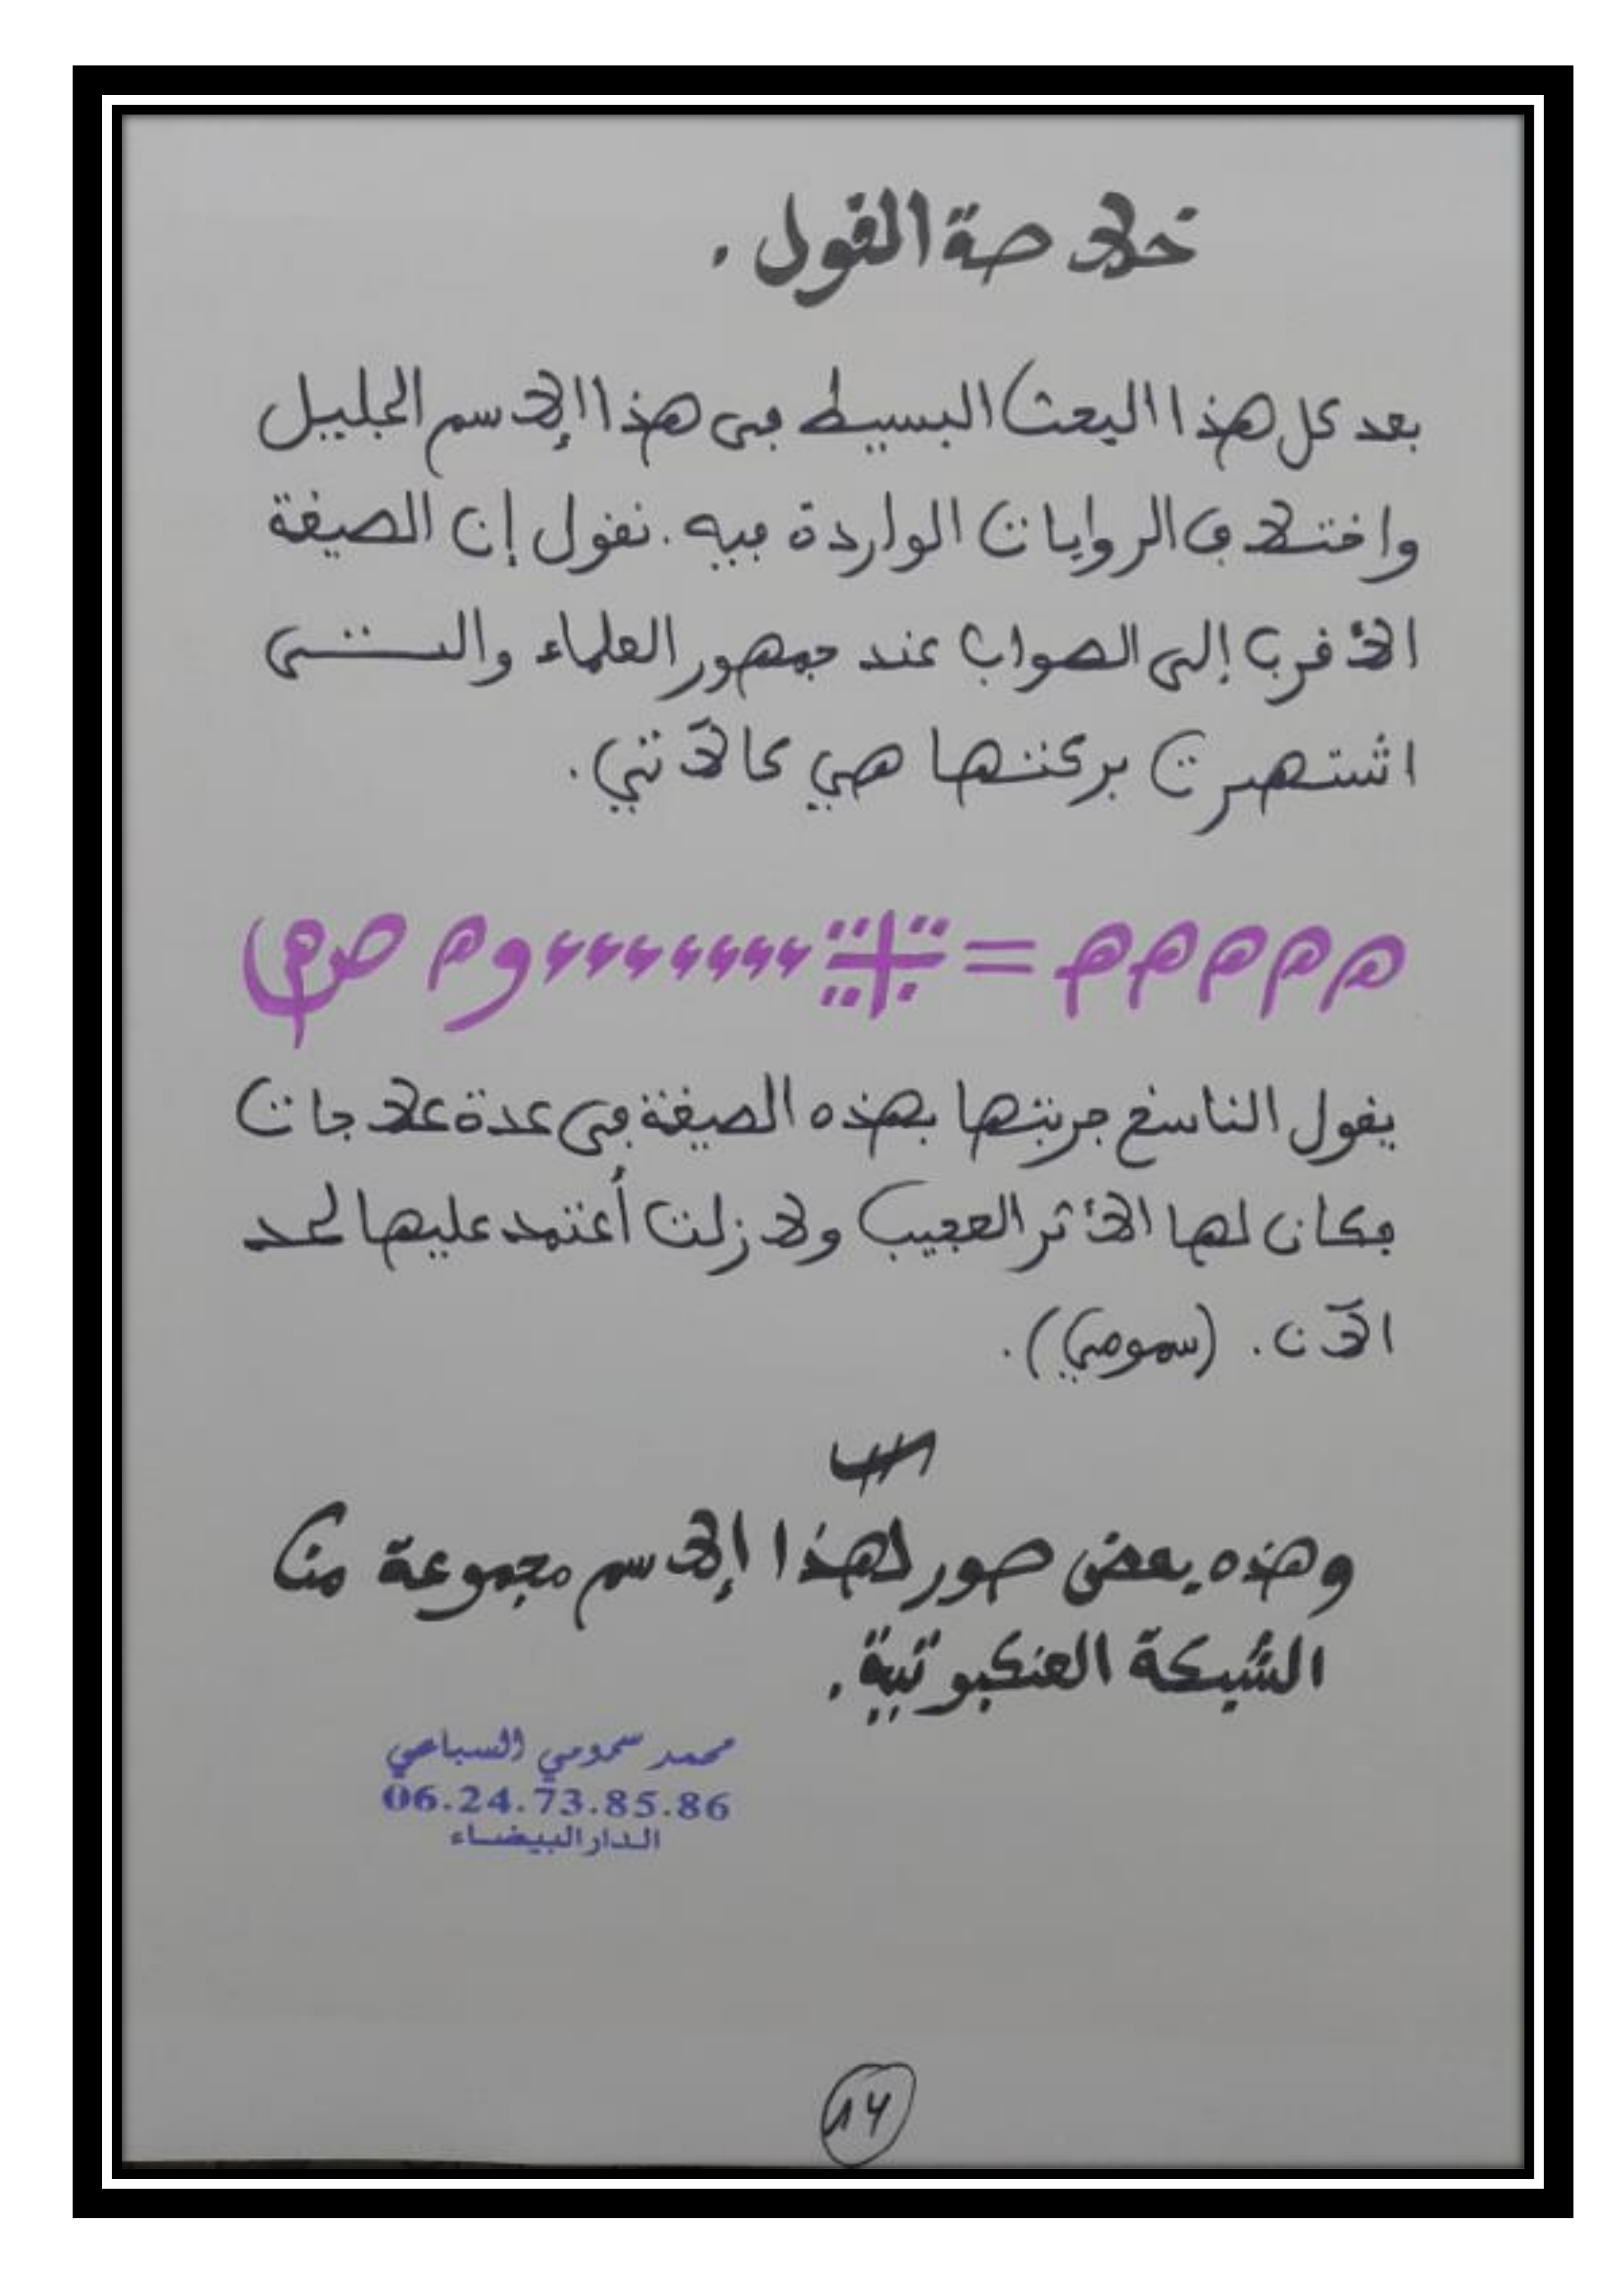 خلاصة القول.
بعد كل هذا البحث البسيط في هذا الإسم الجليل
واختلاف الروايات الواردة فيه. نقول إن الصيغة
الأقرب إلى الصواب عند جمهور العلماء والتـــي
اشتهرت بركتها هي كالآتي.
يقول الناسخ جربتها بهذه الصيغة في عدة علاجات
فكان لها الأثر العجيب ولا زلت أعتمد عليها لحد
الآن. (سمومي).
وهذه بعض صور لهذا إلاسم مجموعة من
الشبكة العنكبوتية.
محمد سمومي السباعي
06.24.73.85.86
الدار البيضاء
14